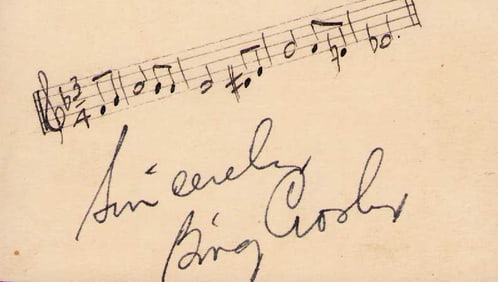 3
4
Sincerely
Bing Crosby